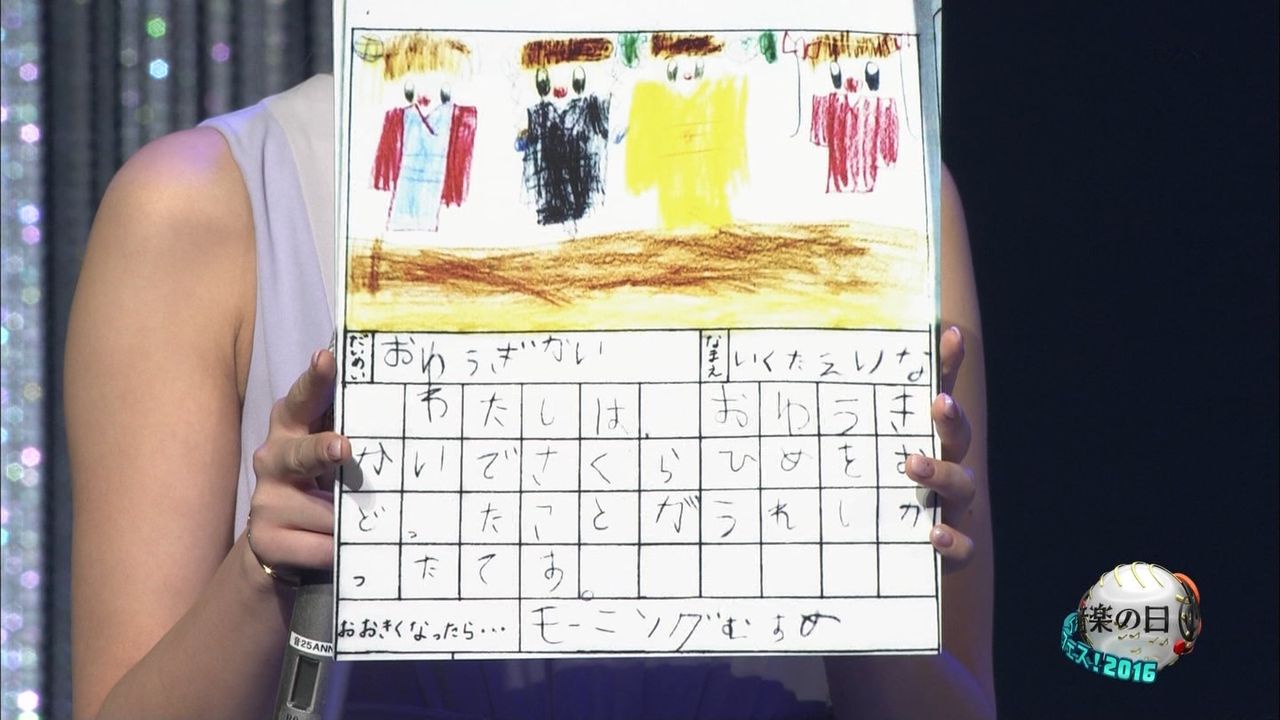 だいめい おゆうぎかい なまえ いくたえりな
わたしは、おゆうき
かいでさくらひめをお
どったことがうれしか
ったてす。
おおきくなったら・・・ モーニングむすめ
音25ANN
楽の日
フェス!2016